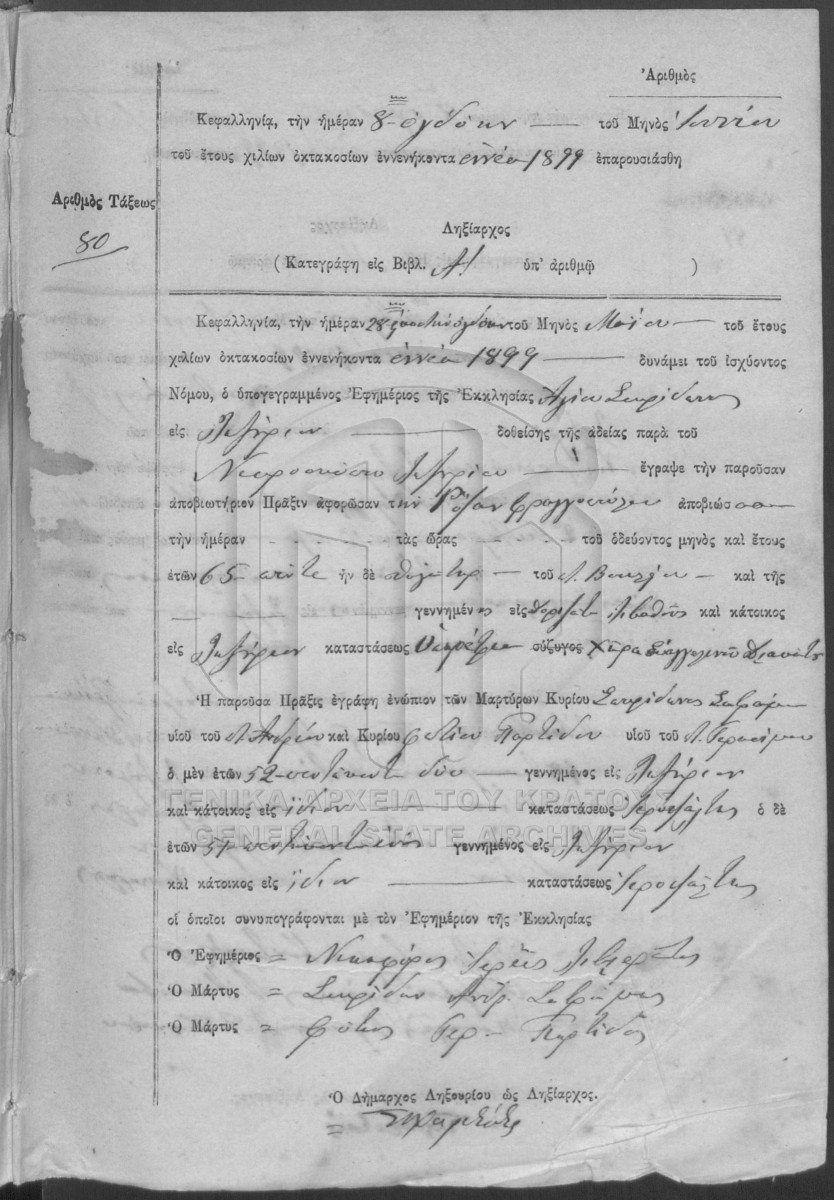 Ἀριθμὸς
Κεφαλληνίᾳ, τὴν ἡμέραν 8 ὀγδόην τοῦ Μηνὸς Ἰουνίου
τοῦ ἔτους χιλίων ὀκτακοσίων ἐννενήκοντα ἐννέα 1899 ἐπαρουσιάσθη
Ἀριθμὸς Τάξεως
80
Ληξίαρχος
( Κατεγράφη εἰς Βιβλ. Α ὑπ' ἀριθμῷ )
Κεφαλληνίᾳ, τὴν ἡμέραν 28 τοῦ Μηνὸς Μαΐου τοῦ ἔτους
χιλίων ὀκτακοσίων ἐννενήκοντα ἐννέα 1899 δυνάμει τοῦ ἰσχύοντος
Νόμου, ὁ ὑπογεγραμμένος Ἐφημέριος τῆς Ἐκκλησίας Ἁγίου Σπυρίδωνος
εἰς Ληξούριον δοθείσης τῆς ἀδείας παρὰ τοῦ
Ληξουρίου ἔγραψε τὴν παροῦσαν
ἀποβιωτήριον Πρᾶξιν ἀφορῶσαν την Ρόζαν Φραγγοπούλου ἀποβιώσασαν
τὴν ἡμέραν τὰς ὥρας τοῦ ὁδεύοντος μηνὸς καὶ ἔτους
ἐτῶν 65 πέντε ἦν δὲ θυγάτηρ τοῦ καὶ τῆς
γεννημένος εἰς καὶ κάτοικος
εἰς Ληξούριον καταστάσεως σύζυγος Χήρα
Ἡ παροῦσα Πρᾶξις ἐγράφη ἐνώπιον τῶν Μαρτύρων Κυρίου Σπυρίδωνος
υἱοῦ τοῦ Ἀνδρέου καὶ Κυρίου Φωτίου Παρτίδου υἱοῦ τοῦ Γερασίμου
ὁ μὲν ἐτῶν 52 πεντήκοντα δύο γεννημένος εἰς Ληξούριον
καὶ κάτοικος εἰς ἴδιον καταστάσεως Ἱεροψάλτης ὁ δὲ
ἐτῶν 51 γεννημένος εἰς Ληξούριον
καὶ κάτοικος εἰς ἴδιον καταστάσεως Ἱεροψάλτης
οἱ ὁποῖοι συνυπογράφονται μὲ τὸν Ἐφημέριον τῆς Ἐκκλησίας
Ὁ Ἐφημέριος = Νικηφόρος Ἱερεὺς
Ὁ Μάρτυς = Σπυρίδων Ἀνδρ.
Ὁ Μάρτυς = Φώτιος Γερ. Παρτίδος
Ὁ Δήμαρχος Ληξουρίου ὡς Ληξίαρχος.
ΓΕΝΙΚΑ ΑΡΧΕΙΑ ΤΟΥ ΚΡΑΤΟΥΣ
GENERAL STATE ARCHIVES